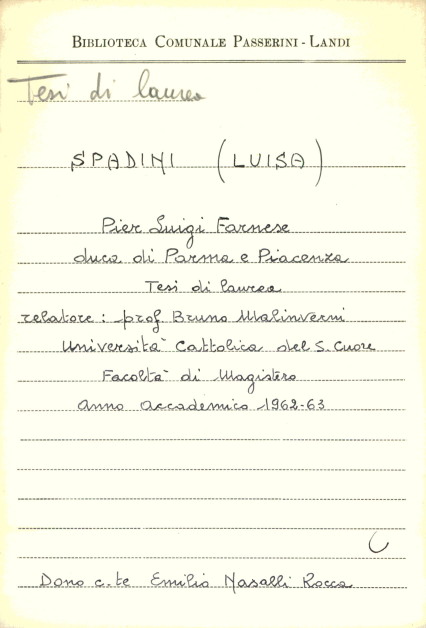 BIBLIOTECA COMUNALE PASSERINI - LANDI
Tesi di laurea
SPADINI (LUISA)
Pier Luigi Farnese
duca di Parma e Piacenza
Tesi di laurea
relatore: prof. Bruno Malinverni
Università Cattolica del S. Cuore
Facoltà di Magistero
Anno accademico 1962-63
Dono c.te Emilio Nasalli Rocca